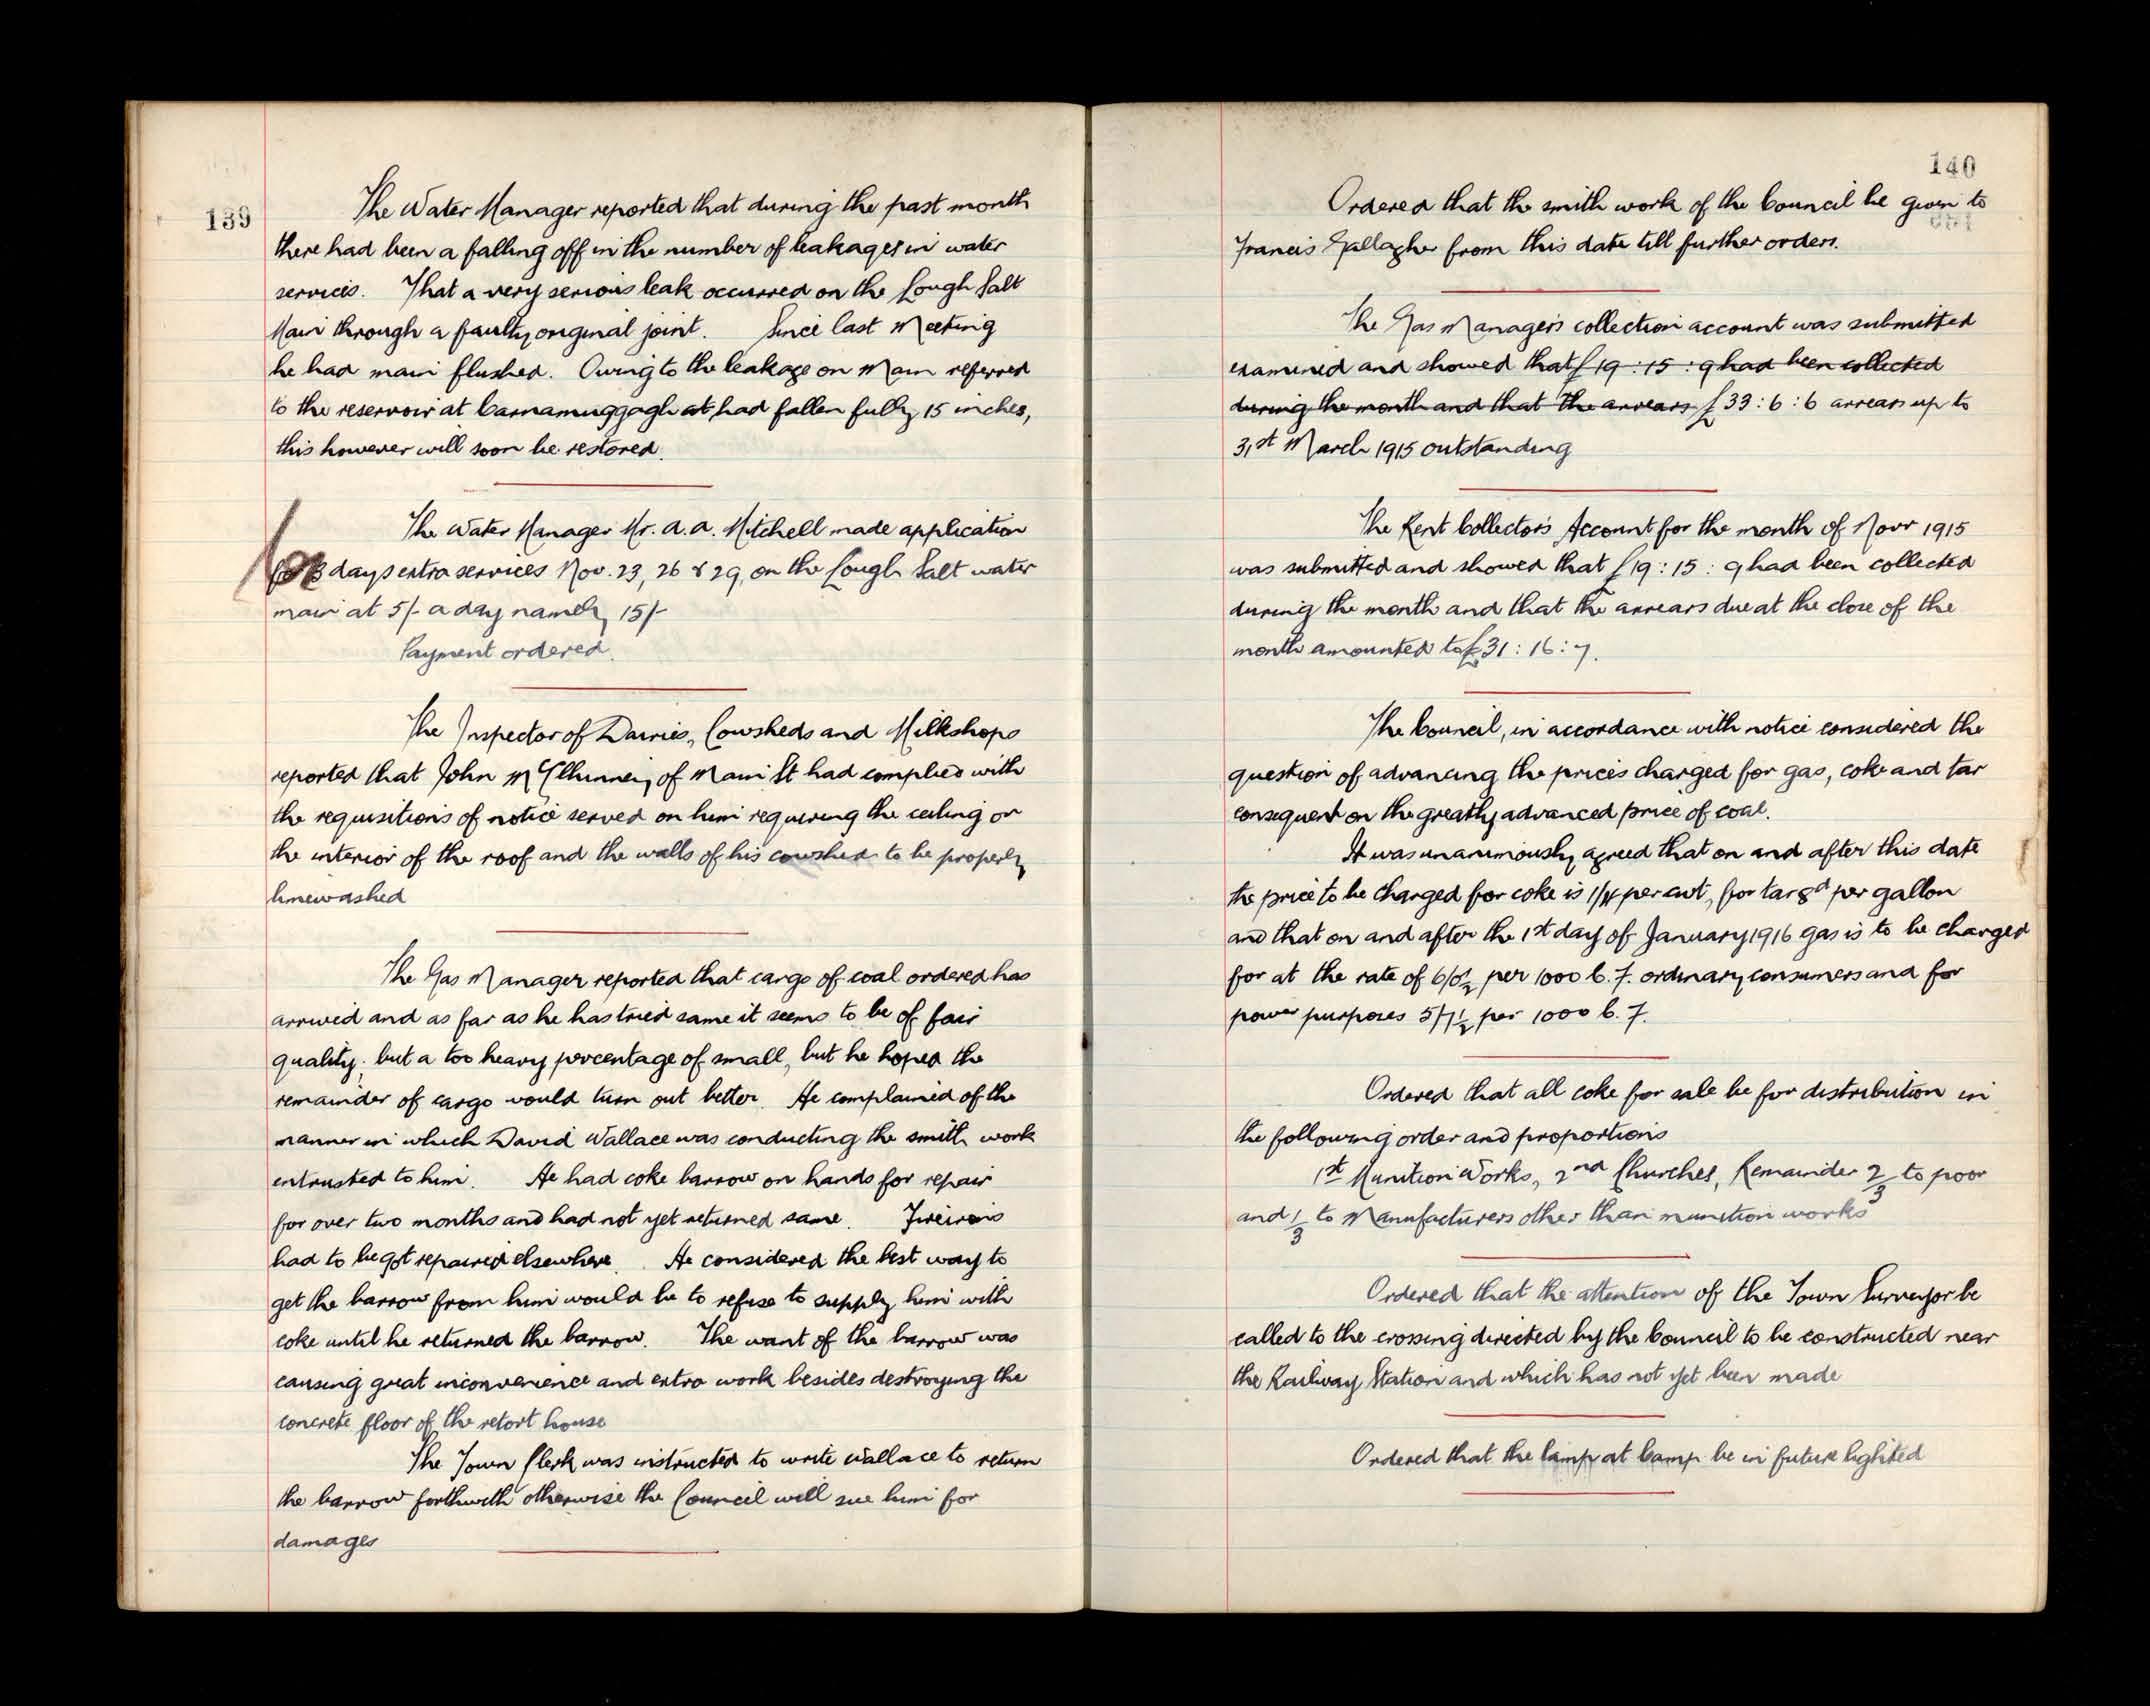 139
The Water Manager reported that during the past month
there had been a falling off in the number of leakages in water
services. That a very serious leak occurred on the Lough Salt
Main through a faulty original joint. Since last Meeting
he had main flushed. Owing to the leakage on Main referred
to the reservoir at Carnamuggagh at had fallen fully 15 inches,
this however will soon be restored.
The Water Manager Mr. A. A. Mitchell made application
for 3 days extra services Nov. 23, 26 & 29, on the Lough Salt water
main at 5/- a day namely 15/-
Payment ordered.
The Inspector of Dairies, Cowsheds and Milkshops
reported that John of Main St had complied with
the requisitions of notice served on him requiring the ceiling or
the interior of the roof and the walls of his cowshed to be properly
limewashed
The Gas Manager reported that cargo of coal ordered has
arrived and as far as he has tried same it seems to be of fair
quality; but a too heavy percentage of small, but he hoped the
remainder of cargo would turn out better. He complained of the
manner in which David Wallace was conducting the smith work
entrusted to him. He had coke barrow on hands for repair
for over two months and had not yet returned same. Fireirons
had to be got repaired elsewhere. He considered the best way to
get the barrow from him would be to refuse to supply him with
coke until he returned the barrow. The want of the barrow was
causing great inconvenience and extra work besides destroying the
concrete floor of the retort house
The Town Clerk was instructed to write Wallace to return
the barrow forthwith otherwise the Council will sue him for
damages
140
Ordered that the smith work of the Council be given to
Francis Gallagher from this date till further orders.
The Gas Manager's collection account was submitted
examined and showed that £19 : 15 : 9 had been collected
during the month and that the arrears £33 : 6 : 6 arrears up to
31st March 1915 outstanding
The Rent Collector's Account for the month of Novr 1915
was submitted and showed that £19 : 15 : 9 had been collected
during the month and that the arrears due at the close of the
month amounted to £31 : 16 : 7.
The Council, in accordance with notice considered the
question of advancing the prices charged for gas, coke and tar
consequent on the greatly advanced price of coal.
It was unanimously agreed that on and after this date
the price to be charged for coke is 1/4 per cwt, for tar 8d per gallon
and that on and after the 1st day of January 1916 gas is to be charged
for at the rate of per 1000 C. F. ordinary consumers and for
power purposes 5/7½ per 1000 C. F.
Ordered that all coke for sale be for distribution in
the following order and proportions
1st Munition Works, 2nd Churches, Remainder 2/3 to poor
and 1/3 to Manufacturers other than munition works
Ordered that the attention of the Town Surveyor be
called to the crossing directed by the Council to be constructed near
the Railway Station and which has not yet been made
Ordered that the lamp at Camp be in future lighted